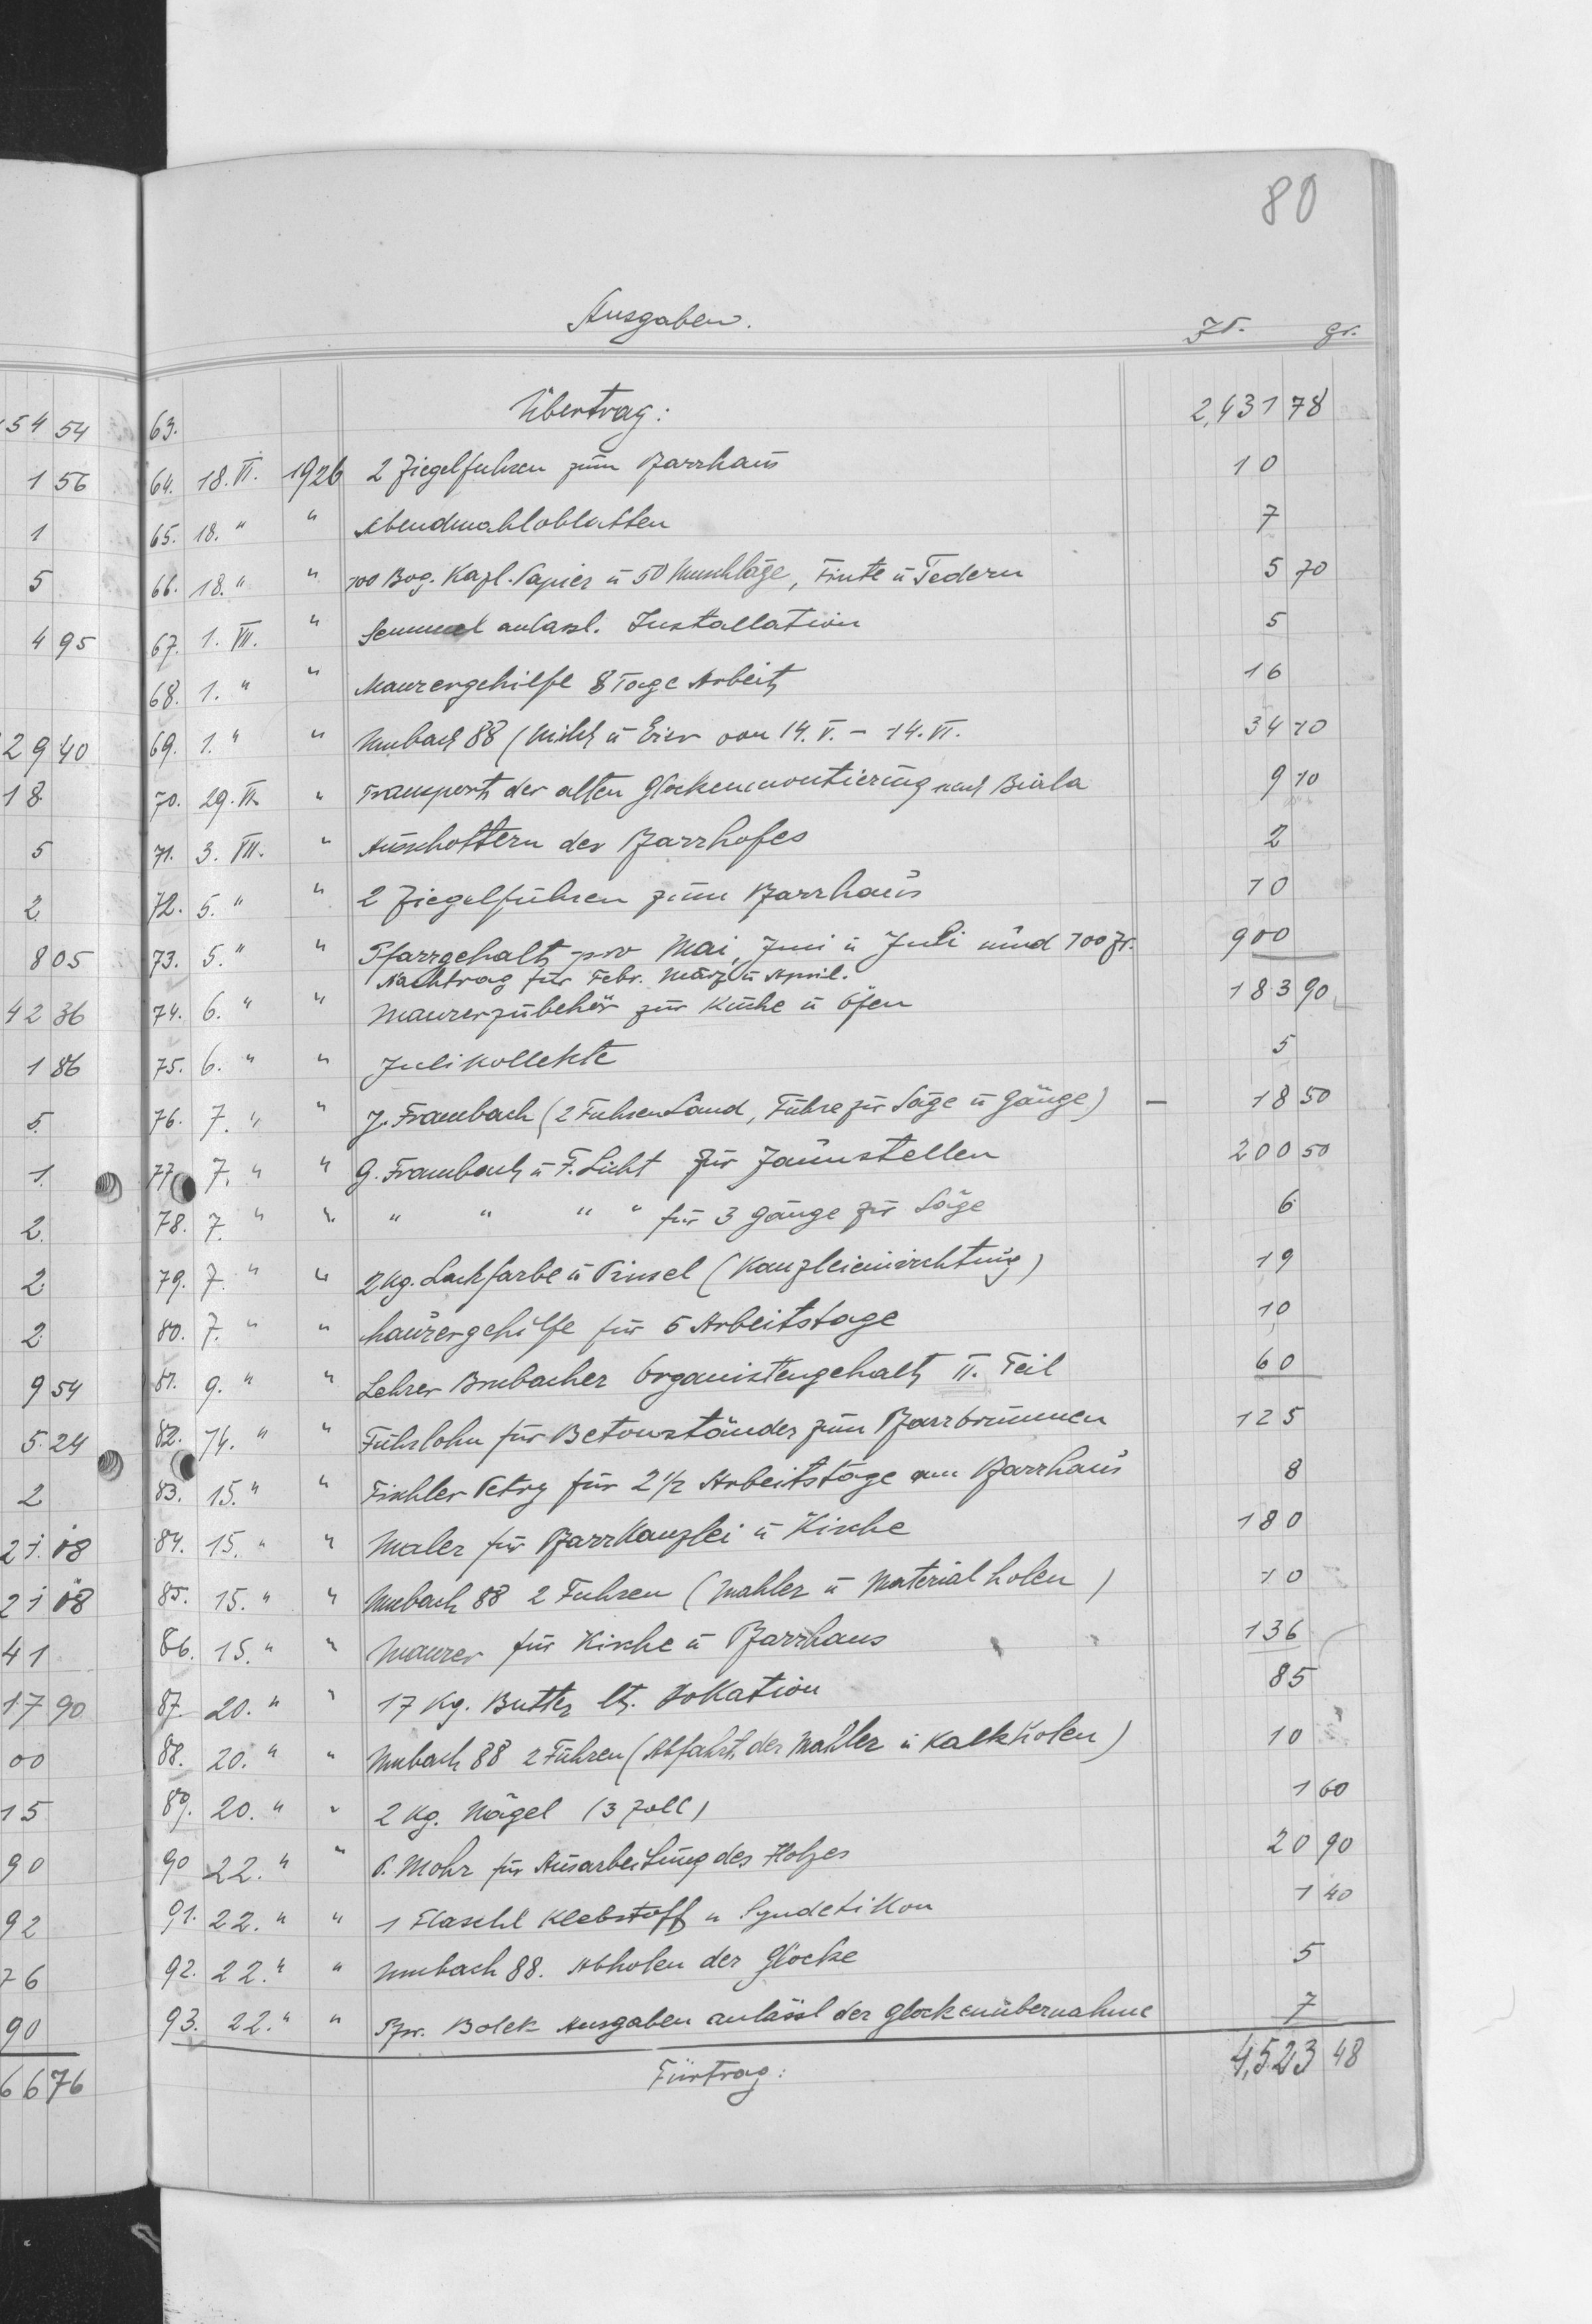 80
Ausgaben. Zł. gr.
54 54 63. Übertrag: 2,431 78
1 56 64. 18. VI. 1926 2 Ziegelfuhren zum Pfarrhaus 10
1 65. 18. " " Abendmahloblatten 7
5 66. 18. " " 100 Bog. Kazl. Papier u 50 Umschläge, Tinte u Federn 5 70
4 95 67. 1. VII. " Semmel anlässl. Installation 5
68. 1. " " Maurergehilfe 8 Tage Arbeit 16
29 40 69. 1. " " 88 (Milch u Eier vom 14. V. - 14. VI. 34 10
18 70. 29. VI. " Transport der alten Glockenmontierung nach Biala 9 10
5 71. 3. VII. " Ausschottern des Pfarrhofes 2
2 72. 5. " " 2 Ziegelfuhren zum Pfarrhaus 10
8 05 73. 5. " " Pfarrgehalt pro Mai, Juni u Juli und 100 Zł. 900
Nachtrag für Febr. März u April.
42 36 74. 6. " " Maurerzubehör zur Küche u Öfen 183 90
1 86 75. 6. " " Julikollekte 5
5. 76. 7. " " J. Frambach (2 Fuhren Sand, Fuhre zur Säge u Gänge) - 18 50
1. 77. 7. " " G. Frambach u F. Licht für Zaunstellen 200 50
2. 78. 7. " " " " " " für 3 Gänge zur Säge 6
2 79. 7. " " 2 Kg. Lackfarbe u Pinsel (Kanzleieinrichtung) 19
2 80. 7. " " Maurergehilfe für 5 Arbeitstage 10
9 54 81. 9. " " Lehrer Brubacher Organistengehalt II. Teil 60
5. 24 82. 14. " " Fuhrlohn für Betonständer zum Pfarrbrunnen 125
2 83. 15. " " Tischler Petry für 2 1/2 Arbeitstage am Pfarrhaus 8
21. 08 84. 15. " " Maler für Pfarrkanzlei u Kirche 180
21 08 85. 15. " " 88 2 Fuhren (Mahler u Material holen) 10
41 86. 15. " " Maurer für Kirche u Pfarrhaus 136
17 90 87. 20. " " 17 Kg. Butter lt. Vokation 85
00 88. 20. " " 88 2 Fuhren (Abfahrt der Mahler u Kalk holen) 10
15 89. 20. " " 2 Kg. Nägel (3 Zoll) 1 60
90 90 22. " " P. Mohr für Ausarbeitung des Holzes 20 90
92 91. 22. " " 1 Flaschl Klebstoff u Syndetikon 1 40
76 92. 22. " " 88. Abholen der Glocke 5
90 93. 22. " " Pfr. Bolek Ausgaben anlässl der Glockenübernahme 7
66 76 Fürtrag: 4,523 48